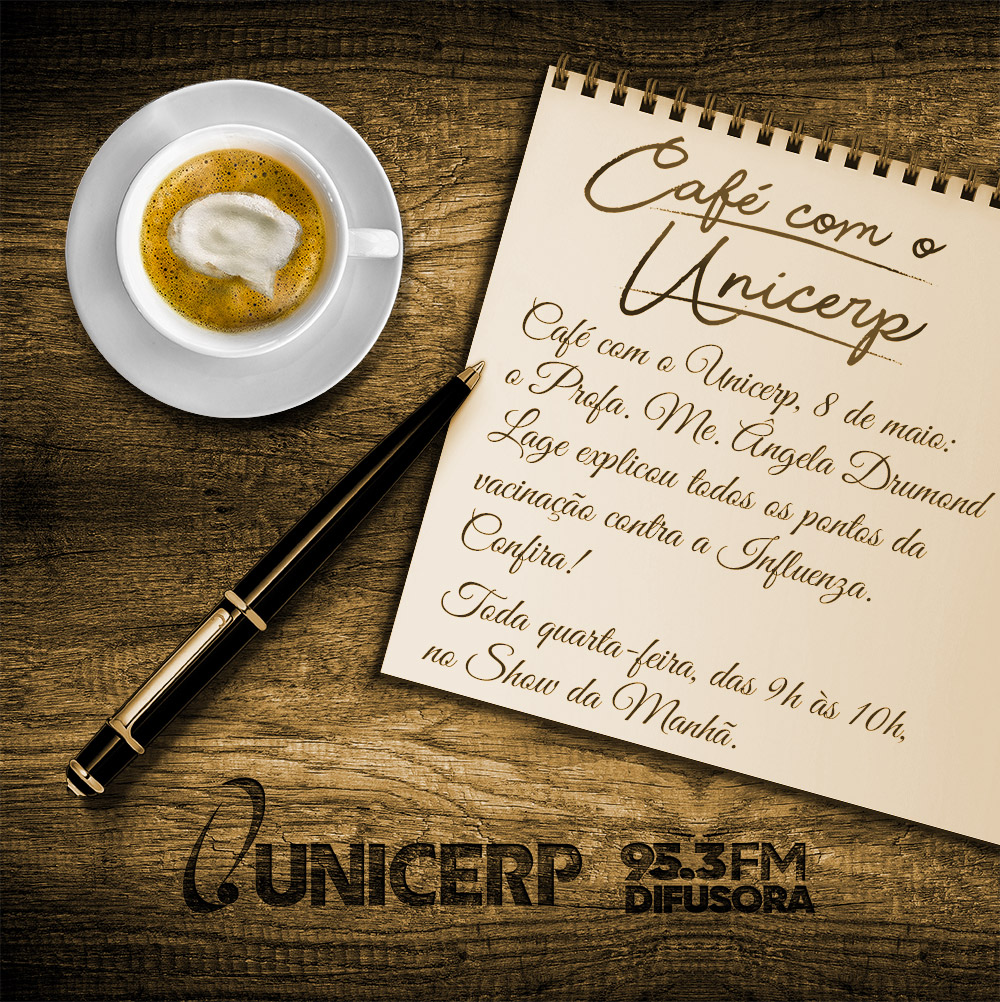 Café com o
Unicerp
Café com o Unicerp, 8 de maio:
o Profa. Me. Ângela Drumond
Lage explicou todos os pontos da
vacinação contra a Influenza.
Confira!
Toda quarta-feira, das 9h às 10h,
no Show da Manhã.
UNICERP
95.3 FM
DIFUSORA